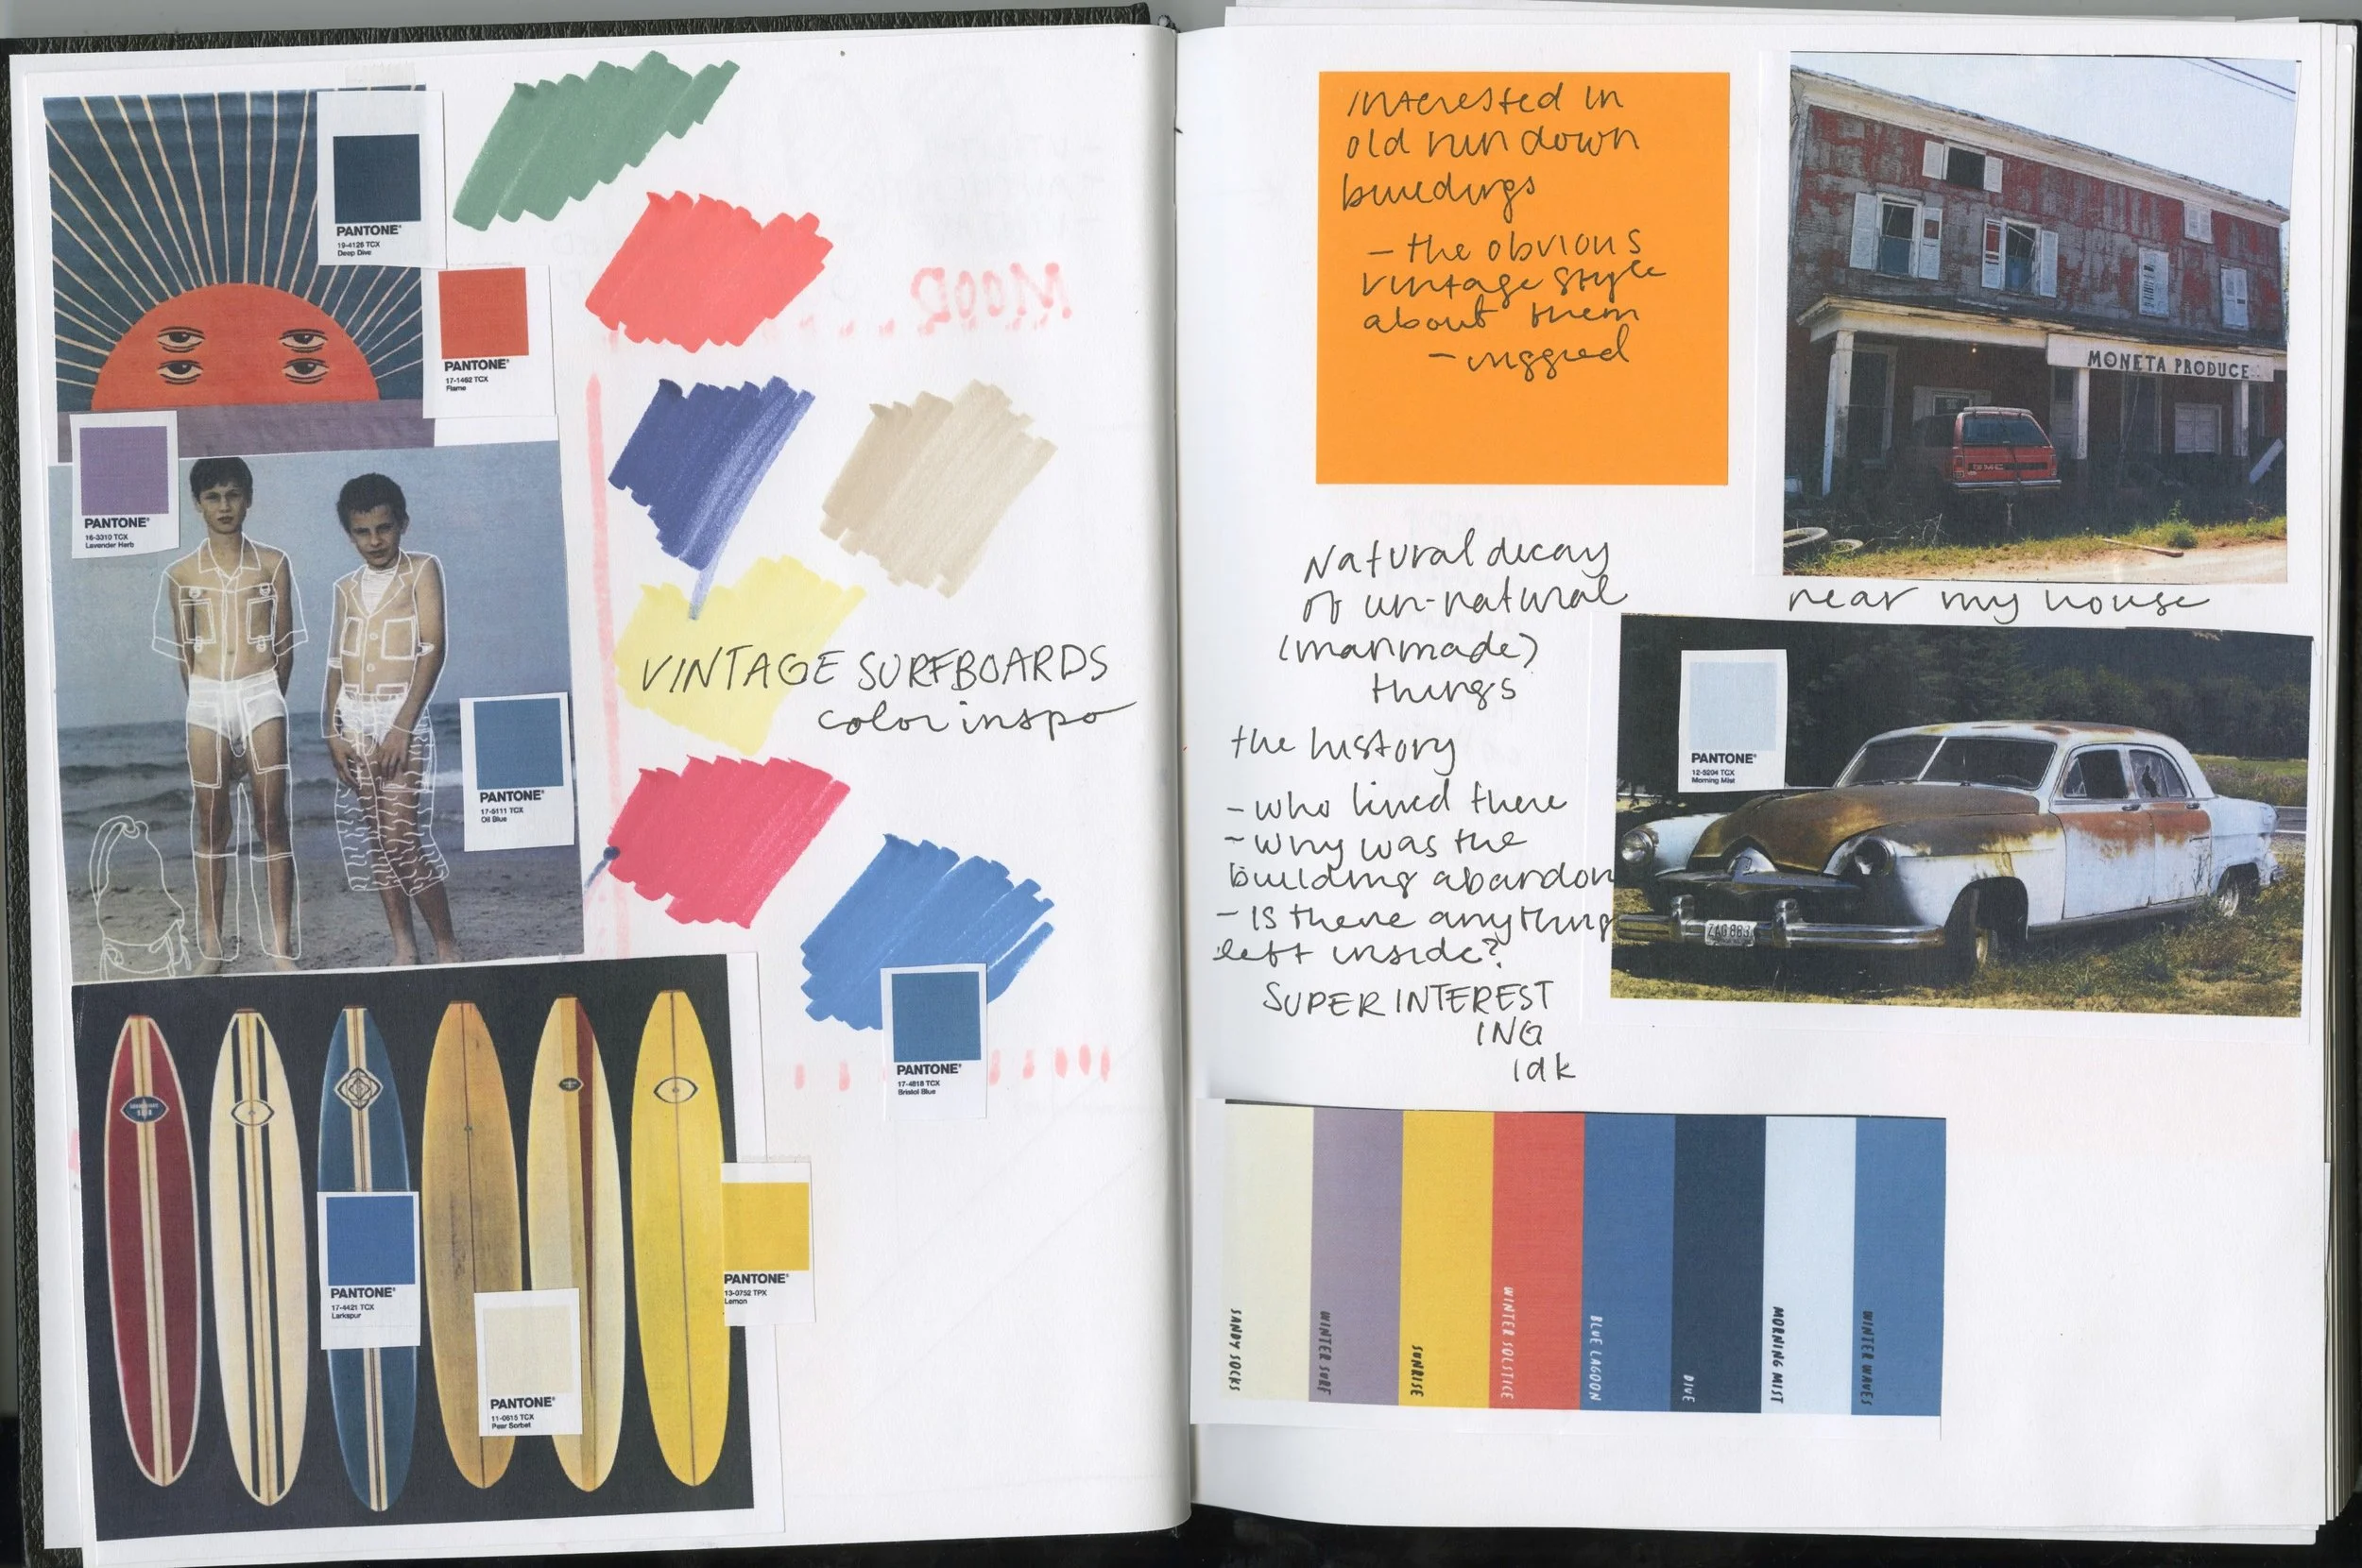 PANTONE®
19-4126 TCX
Deep Dive
PANTONE®
17-1462 TCX
Flame
PANTONE®
16-3310 TCX
Lavender Herb
PANTONE®
17-5111 TCX
Oil Blue
MOOD
VINTAGE SURFBOARDS
color inspo
PANTONE®
17-4818 TCX
Bristol Blue
PANTONE®
17-4421 TCX
Larkspur
PANTONE®
11-0615 TCX
Pear Sorbet
PANTONE®
13-0752 TPX
Lemon
interested in
old run down
buildings
- the obvious
vintage style
about them
- rugged
MONETA PRODUCE
GMC
near my house
Natural decay
of un-natural
(manmade)
things
the history
- who lived there
- why was the
building abandon
- Is there anything
left inside?
SUPER INTEREST
ING
idk
PANTONE®
12-5204 TCX
Morning Mist
SANDY SOCKS
WINTER SURF
SUNRISE
WINTER SOLSTICE
BLUE LAGOON
DIVE
MORNING MIST
WINTER WAVES